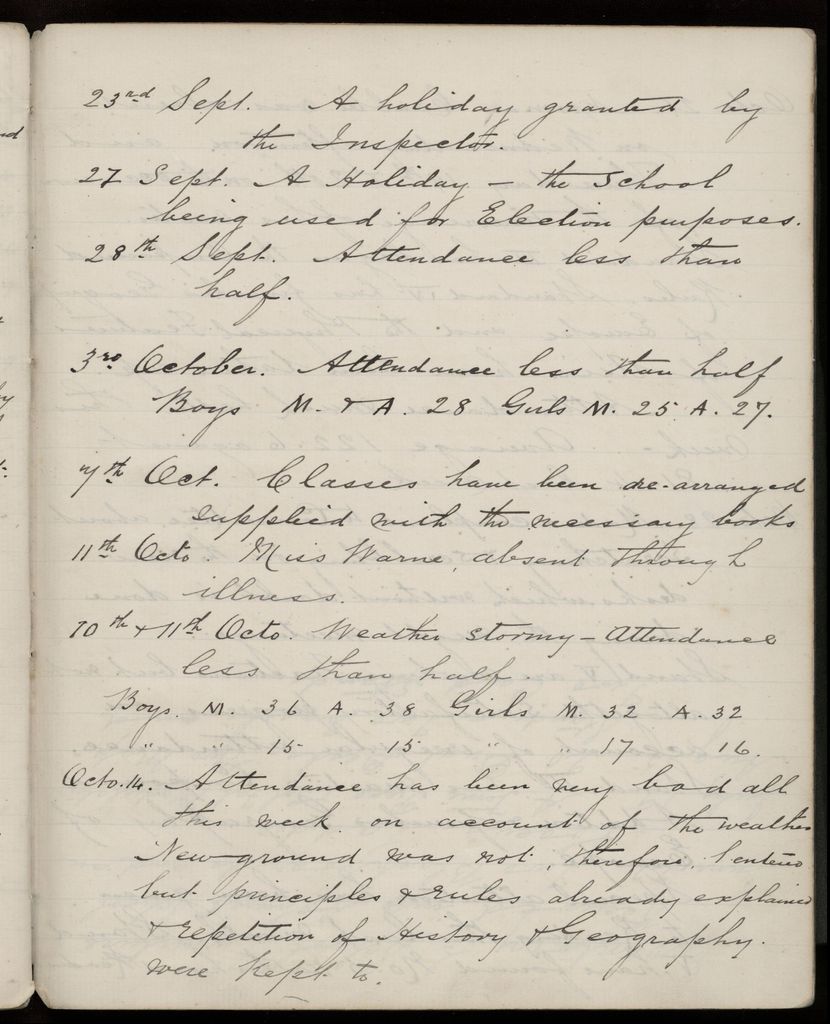 23rd Sept. A holiday granted by
the Inspector.
27 Sept. A Holiday – the School
being used for Election purposes.
28th Sept. Attendance less than
half.
3rd October. Attendance less than half
Boys M. & A. 28 Girls M. 25 A. 27.
7th Oct. Classes have been re-arranged
supplied with the necessary books
11th Octo. Miss Warne, absent through
illness.
10th & 11th Octo. Weather stormy – Attendance
less than half.
Boys. M. 36 A. 38 Girls M. 32 A. 32
" " 15 15 " " 17 16.
Octo. 14. Attendance has been very bad all
this week on account of the weather
New ground was not, therefore, entered
but principles & rules already explained
& repetition of History & Geography.
were kept to.